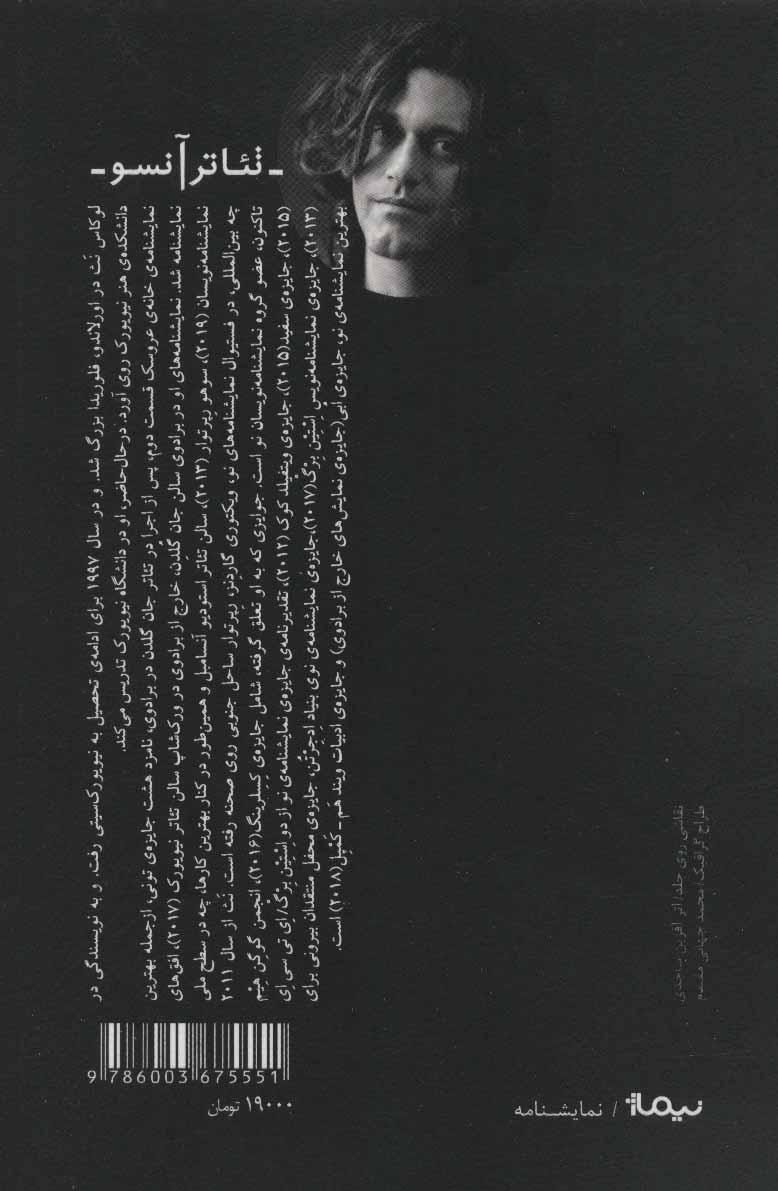 ـ تئاتر آنسو ـ
لوکاس نَث در اورلاندو، فلوریدا بزرگ شد. و در سال ۱۹۹۷ برای ادامه‌ی تحصیل به نیویورک‌سیتی رفت. و به نویسندگی در
دانشکده‌ی هنر نیویورک روی آورد. درحال‌حاضر، او در دانشگاه نیویورک تدریس می‌کند.
نمایشنامه‌ی خانه‌ی عروسک قسمت دوم، پس از اجرا در تئاتر جان گلدن در برادوی، نامزد هشت جایزه‌ی تونی، ازجمله بهترین
نمایشنامه شد. نمایشنامه‌های او در برادوی سالن جان گلدِن، خارج از برادوی در ورک‌شاپ سالن تئاتر نیویورک (۲۰۱۷)، افق‌های
نمایشنامه‌نویسان (۲۰۱۹)، سوهو رِپرتوار (۲۰۱۳)، سالن تئاتر استودیو آنسامبل و همین‌طور در کنار بهترین کارها، چه در سطح ملی
چه بین‌المللی، در فستیوال نمایشنامه‌های نو، ویکتوری گاردنز، رِپرتوار ساحل جنوبی روی صحنه رفته است. نَث از سال ۲۰۱۱
تاکنون، عضو گروه نمایشنامه‌نویسان نو است. جوایزی که به او تعلق گرفته، شامل جایزه‌ی کِسِلرینگ(۲۰۱۶)، انجمن گوگِن هِیْم
(۲۰۱۵)، جایزه‌ی سفید(۲۰۱۵)، جایزه‌ی ویتفیلد کوک (۲۰۱۲)، تقدیرنامه‌ی جایزه‌ی نمایشنامه‌ی نو از دو اِسْتَیْن بِرْگ/ اِی تی سی اِی
(۲۰۱۳)، جایزه‌ی نمایشنامه‌نویسِ اِسْتَیْن بِرْگ(۲۰۱۷)،جایزه‌ی نمایشنامه‌ی نوی بنیاد ادجِرتُن، جایزه‌ی محفل منتقدان بیرونی برای
بهترین نمایشنامه‌ی نو، جایزه‌ی اُبی(جایزه‌ی نمایش‌های خارج از برادوی) و جایزه‌ی ادبیات ویند هَم ـ کَمْپِل(۲۰۱۸) است.
نقاشی روی جلد/ اثر آفرین
طراح گرافیک/ محمد جهانی مقدم
9 786003 675551
۱۹۰۰۰ تومان
نیماژ / نمایشنامه